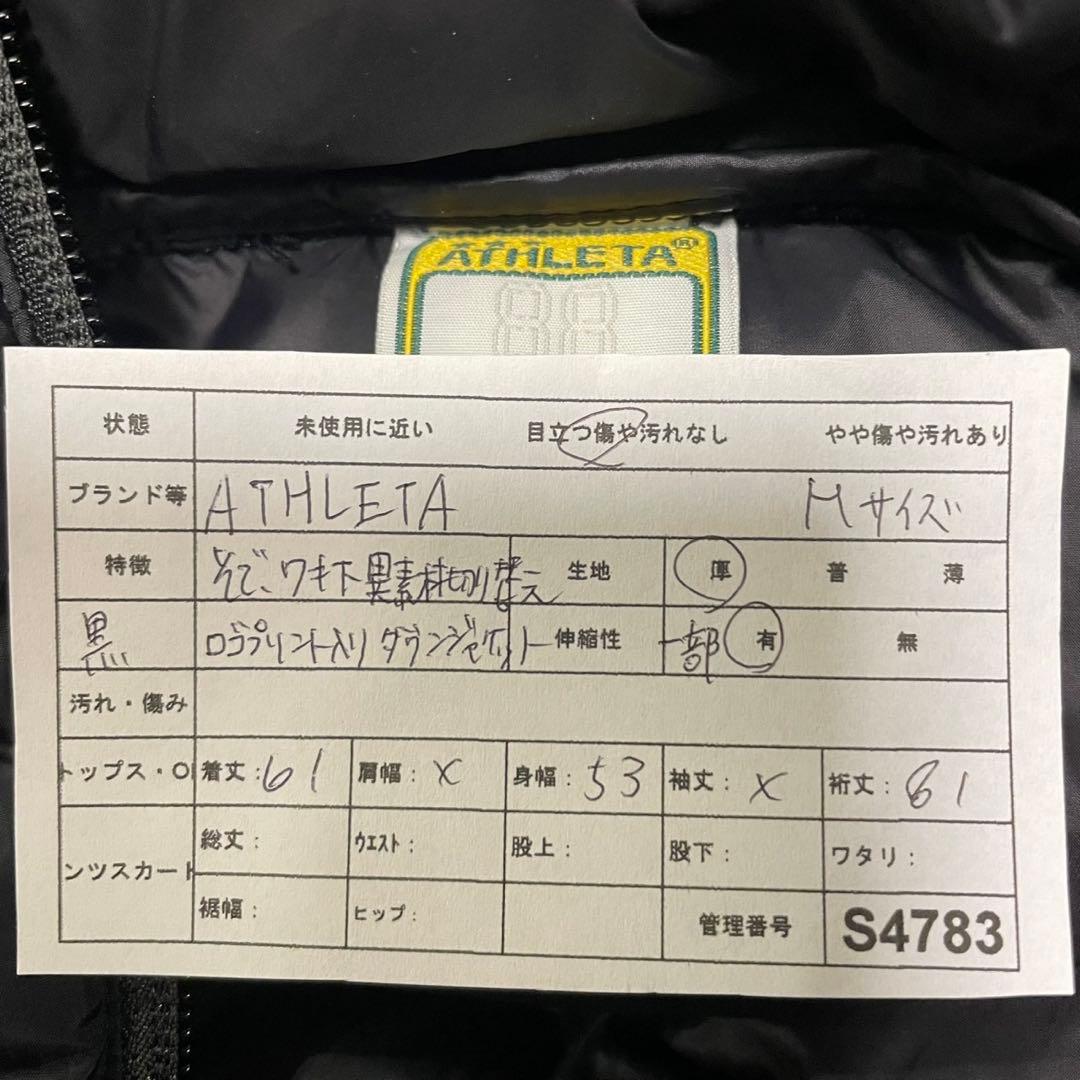 ATHLETA®
88
状態 未使用に近い 目立つ傷や汚れなし やや傷や汚れあり
ブランド等 ATHLETA Mサイズ
特徴 そで、ワキ下異素材切り替え 生地 厚 普 薄
黒 ロゴプリント入り ダウンジャケット 伸縮性 一部 有 無
汚れ・傷み
トップス・O 着丈:61 肩幅:x 身幅:53 袖丈:x 裄丈:81
ンツスカート 総丈: ウエスト: 股上: 股下: ワタリ:
裾幅: ヒップ: 管理番号 S4783